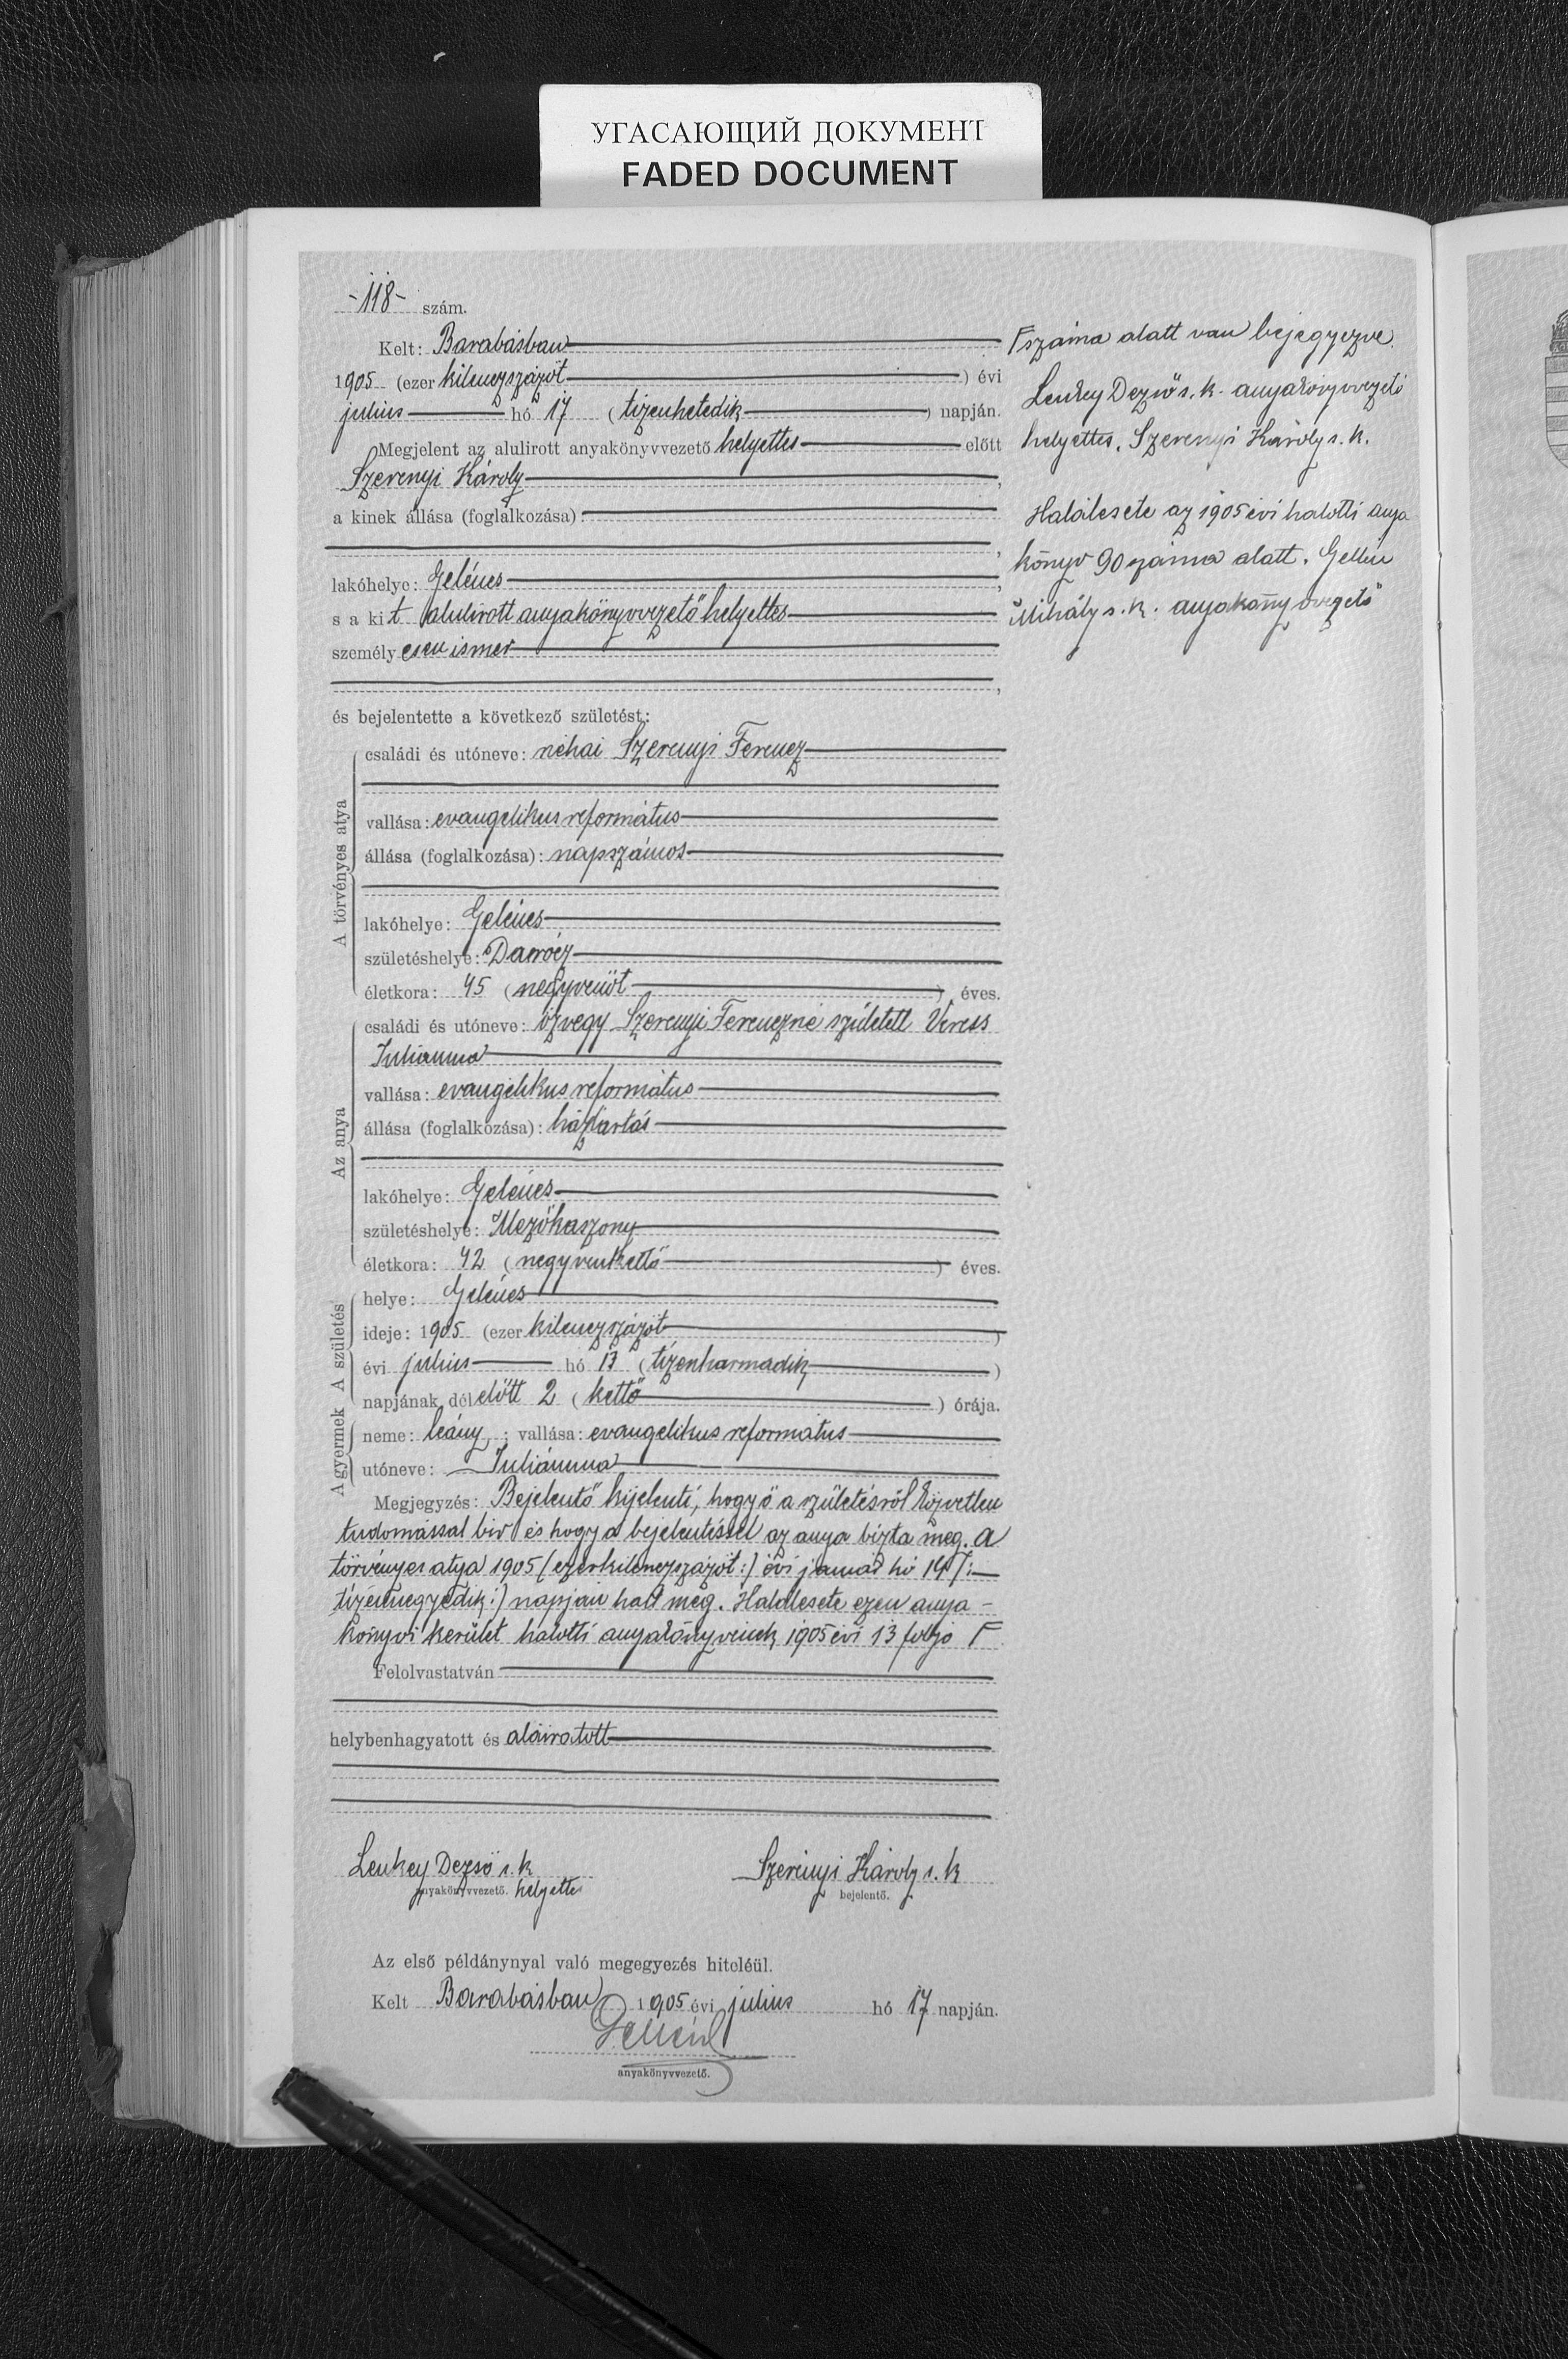 УГАСАЮЩИЙ ДОКУМЕНТ
FADED DOCUMENT
-118- szám.
Kelt: Barabásban
1905 (ezer kilenczszázöt) évi
julius hó 17 (tizenhetedik) napján.
Megjelent az alulirott anyakönyvvezető helyettes előtt
Szerenyi Károly,
a kinek állása (foglalkozása):
lakóhelye: Gelénes,
s a kit alulirott anyakönyvvezető helyettes
személyesen ismer,
és bejelentette a következő születést:
A törvényes atya
családi és utóneve: néhai Szerenyi Ferencz
vallása: evangelikus református
állása (foglalkozása): napszámos
lakóhelye: Gelénes
születéshelye: Darócz
életkora: 45 (negyvenöt) éves.
Az anya
családi és utóneve: özvegy Szerenyi Ferenczné született Veress
Julianna
vallása: evangelikus református
állása (foglalkozása): háztartás
lakóhelye: Gelénes
születéshelye: Mezőkaszony
életkora: 42 (negyvenkettő) éves.
A születés
helye: Gelénes
ideje: 1905 (ezer kilenczszázöt)
évi julius hó 13 (tizenharmadik)
napjának délelőtt 2 (kettő) órája.
A gyermek
neme: leány; vallása: evangelikus református
utóneve: Juliánna
Megjegyzés: Bejelentő kijelenti, hogy ő a születésről közvetlen
tudomással bir és hogy a bejelentéssel az anya bizta meg. A
törvényes atya 1905 (ezerkilenczszázöt:) évi január hó 14 (:
tizennegyedik:) napján halt meg. Halálesete ezen anya-
könyvi kerület halotti anyakönyvének 1905 évi 13 folyó F
Felolvastatván
helybenhagyatott és aláiratott
Lenkey Dezső s. k. Szerényi Károly s. k.
anyakönyvvezető. helyettes bejelentő.
Az első példánynyal való megegyezés hiteléül.
Kelt Barabásban 1905 évi julius hó 17 napján.
Gellén
anyakönyvvezető.
F száma alatt van bejegyezve.
Lenkey Dezső s. k. anyakönyvvezető
helyettes. Szerenyi Károly s. k.
Halálesete az 1905 évi halotti anya
könyv 90 száma alatt. Gellén
Mihály s. k. anyakönyvvezető